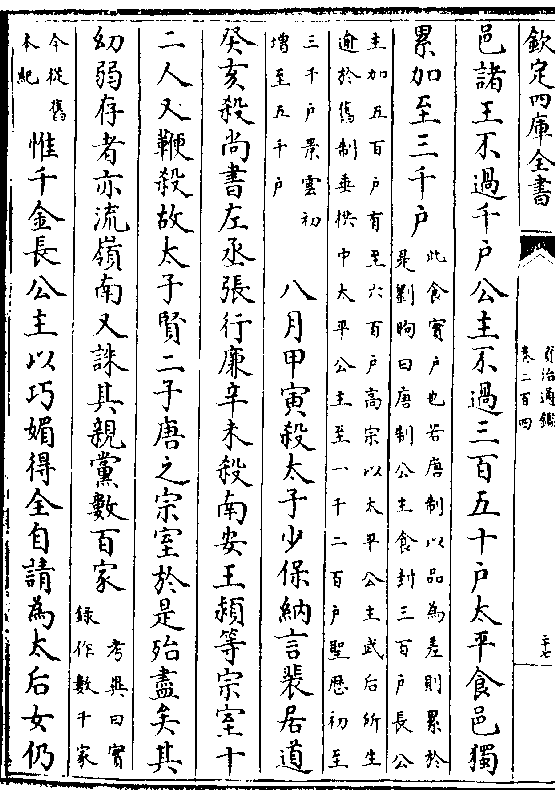 欽定四庫全書
資治通鑑
卷二百四
三十七
邑諸王不過千戶公主不過三百五十戶太平食邑獨
累加至三千戶
此食實戶也若唐制以品為差則累於
是劉昫曰唐制公主食封三百戶長公
主加五百戶有至六百戶高宗以太平公主武后所生
逾於舊制垂拱中太平公主至一千二百戶聖歷初至
三千戶景雲初
增至五千戶
八月甲寅殺太子少保納言裴居道
癸亥殺尚書左丞張行廉辛未殺南安王潁等宗室十
二人又鞭殺故太子賢二子唐之宗室於是殆盡矣其
幼弱存者亦流嶺南又誅其親黨數百家
考異曰實
錄作數千家
今從舊
本紀
惟千金長公主以巧媚得全自請為太后女仍